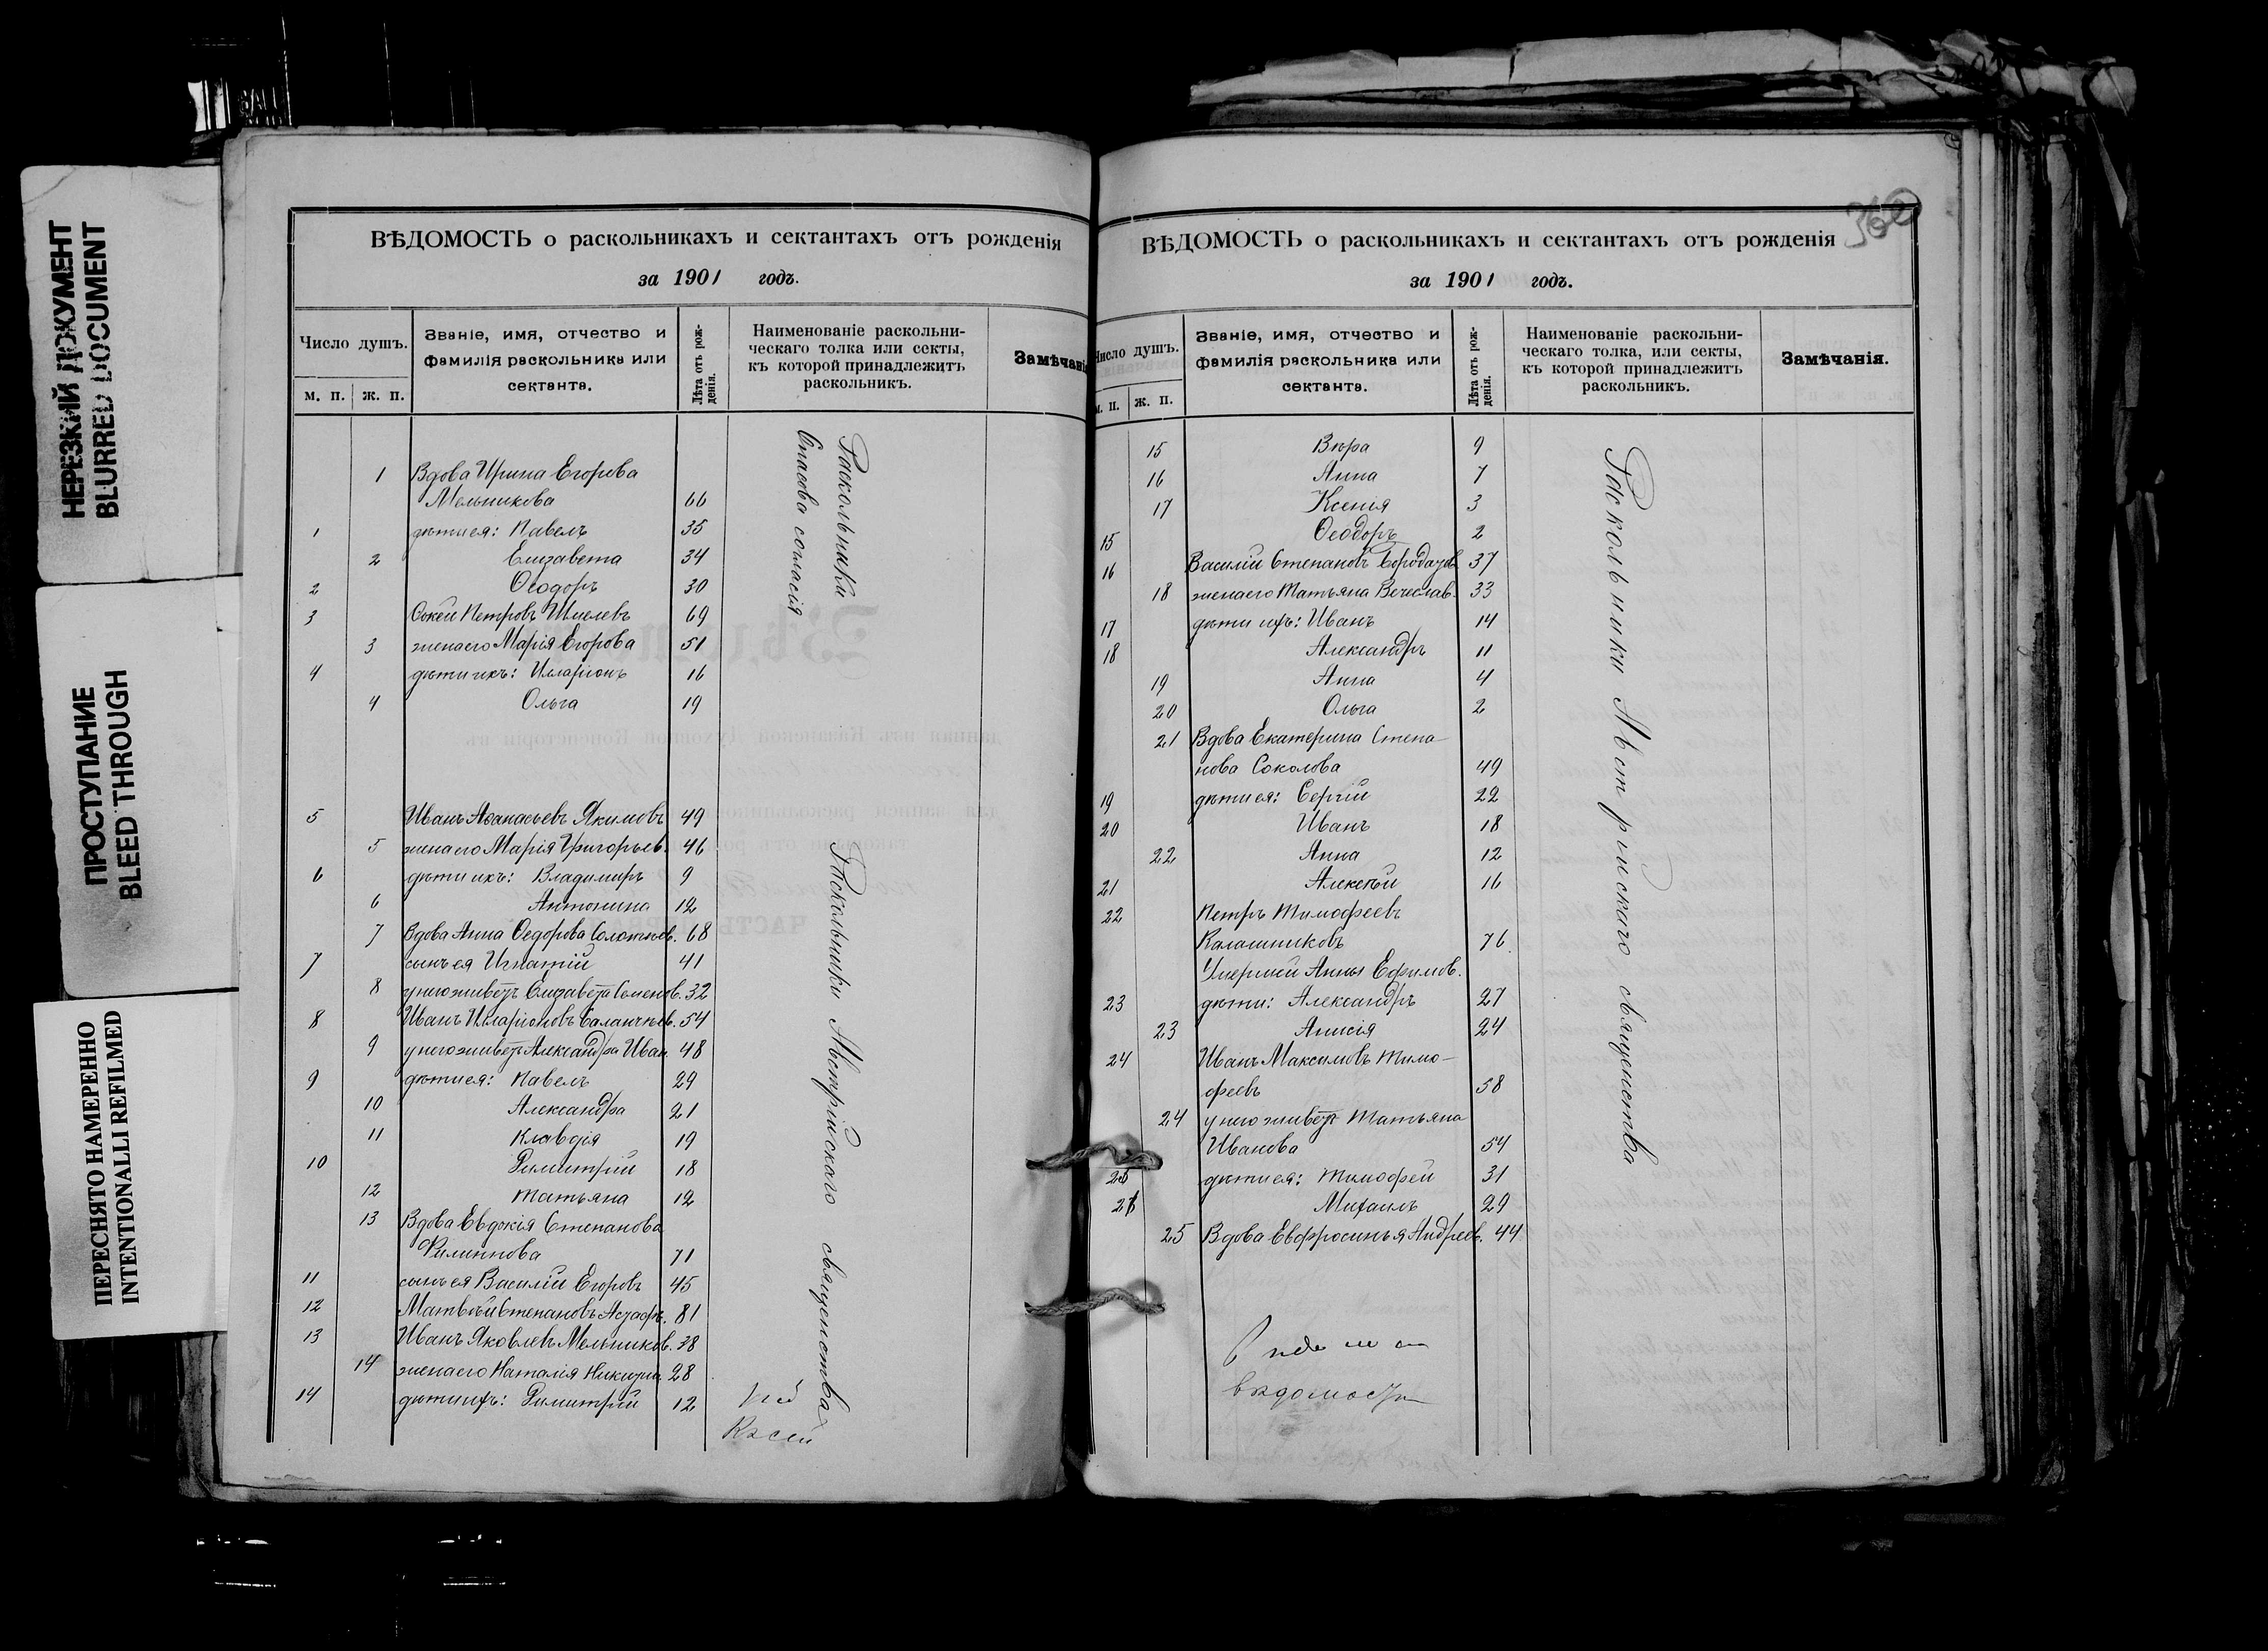 НЕРЕЗКИЙ ДОКУМЕНТ
BLURRED DOCUMENT
ПРОСТУПАНИЕ
BLEED THROUGH
ПЕРЕСНЯТО НАМЕРЕННО
INTENTIONALLI REFILMED
ВѢДОМОСТЬ о раскольникахъ и сектантахъ отъ рожденія
за 1901 годъ.
Число душъ.
м. п. ж. п.
Званіе, имя, отчество и
фамилія раскольника или
сектанта.
Лѣта отъ рож-
денія.
Наименованіе раскольни-
ческаго толка или секты,
къ которой принадлежитъ
раскольникъ.
Замѣчані
1 Вдова Ирина Егорова
Мельникова 66
1 дѣти ея: Павелъ 35
2 Елизавета 34
2 Ѳеодоръ 30
3 Фокей Петровъ Шмелевъ 69
3 жена его Марія Егорова 51
4 дѣти ихъ: Илларіонъ 16
4 Ольга 19
Раскольники
Спасова согласія
5 Иванъ Аѳанасьевъ Якимовъ 49
5 жена его Марія Григорьев. 46
6 дѣти ихъ: Владиміръ 9
6 Антонина 12
7 Вдова Анна Ѳедорова 68
7 сынъ ея Игнатій 41
8 у него живетъ Елизавета Семенов. 32
8 Иванъ Илларіоновъ 54
9 у него живетъ Александра Иван. 48
9 дѣти ея: Павелъ 29
10 Александра 21
11 Клавдія 19
10 Димитрій 18
12 Татьяна 12
13 Вдова Евдокія Степанова
Филиппова 71
11 сынъ ея Василій Егоровъ 45
12 Матвѣй Степановъ Астаф. 81
13 Иванъ Яковлевъ Мельников. 38
14 жена его Наталія Никит. 28
14 дѣти ихъ: Димитрій 12
Раскольники Австрійскаго священства
360
ВѢДОМОСТЬ о раскольникахъ и сектантахъ отъ рожденія
за 1901 годъ.
Число душъ.
м. п. ж. п.
Званіе, имя, отчество и
фамилія раскольника или
сектанта.
Лѣта отъ рож-
денія.
Наименованіе раскольни-
ческаго толка, или секты,
къ которой принадлежитъ
раскольникъ.
Замѣчанія.
15 Вѣра 9
16 Анна 7
17 Ксенія 3
15 Ѳеодоръ 2
16 Василій Степановъ 37
18 жена его Татьяна Вечеслав. 33
17 дѣти ихъ: Иванъ 14
18 Александръ 11
19 Анна 4
20 Ольга 2
21 Вдова Екатерина Степа-
нова Соколова 49
19 дѣти ея: Сергій 22
20 Иванъ 18
22 Анна 12
21 Алексѣй 16
22 Петръ Тимофеевъ
Калашниковъ 76
Умершей Анны Ефимов.
23 дѣти: Александръ 27
23 Анисія 24
24 Иванъ Максимовъ Тимо-
феевъ 58
24 у него живетъ Татьяна
Иванова 54
25 дѣти ея: Тимофей 31
26 Михаилъ 29
25 Вдова Евфросинья Андреев. 44
Раскольники Австрійскаго священства
вѣдомости